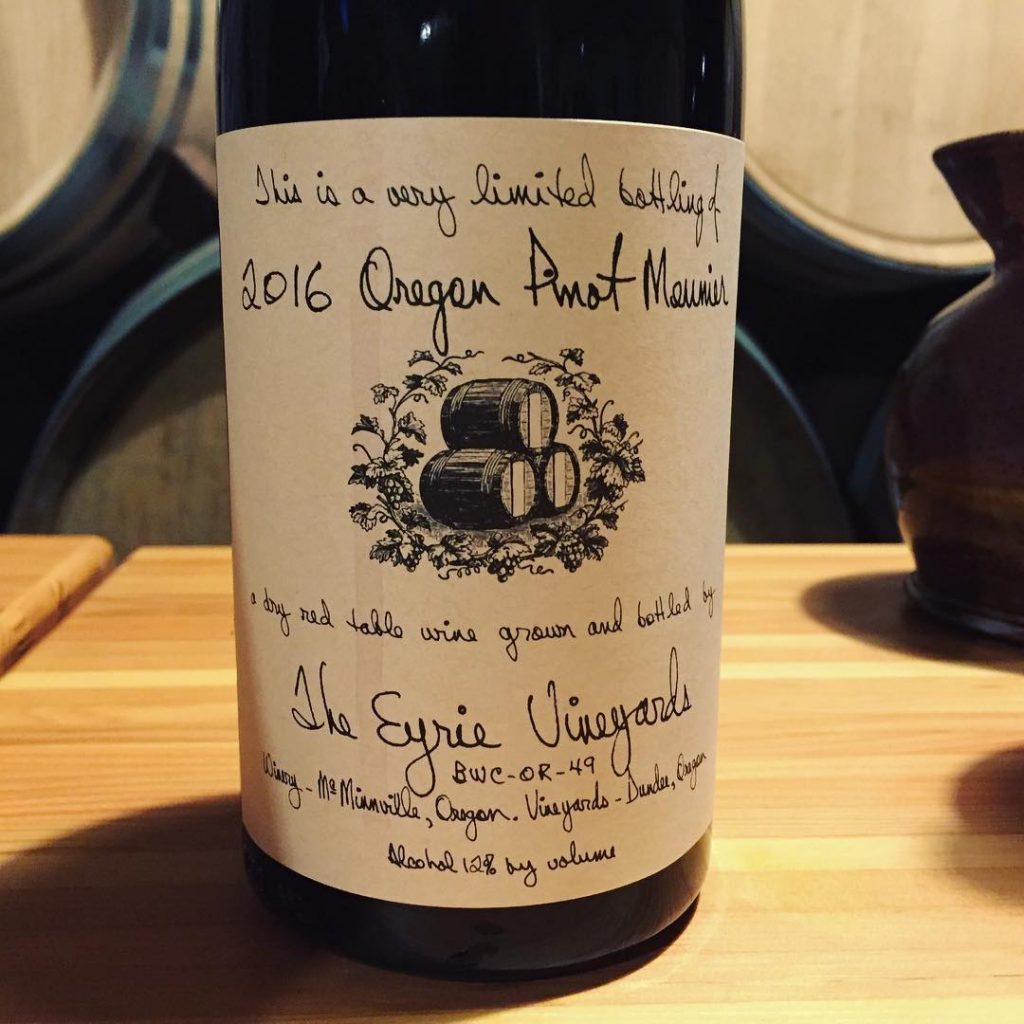 This is a very limited bottling of
2016 Oregon Pinot Meunier
a dry red table wine grown and bottled by
The Eyrie Vineyards
BWC-OR-49
Winery - McMinnville, Oregon. Vineyards - Dundee, Oregon
Alcohol 12% by volume